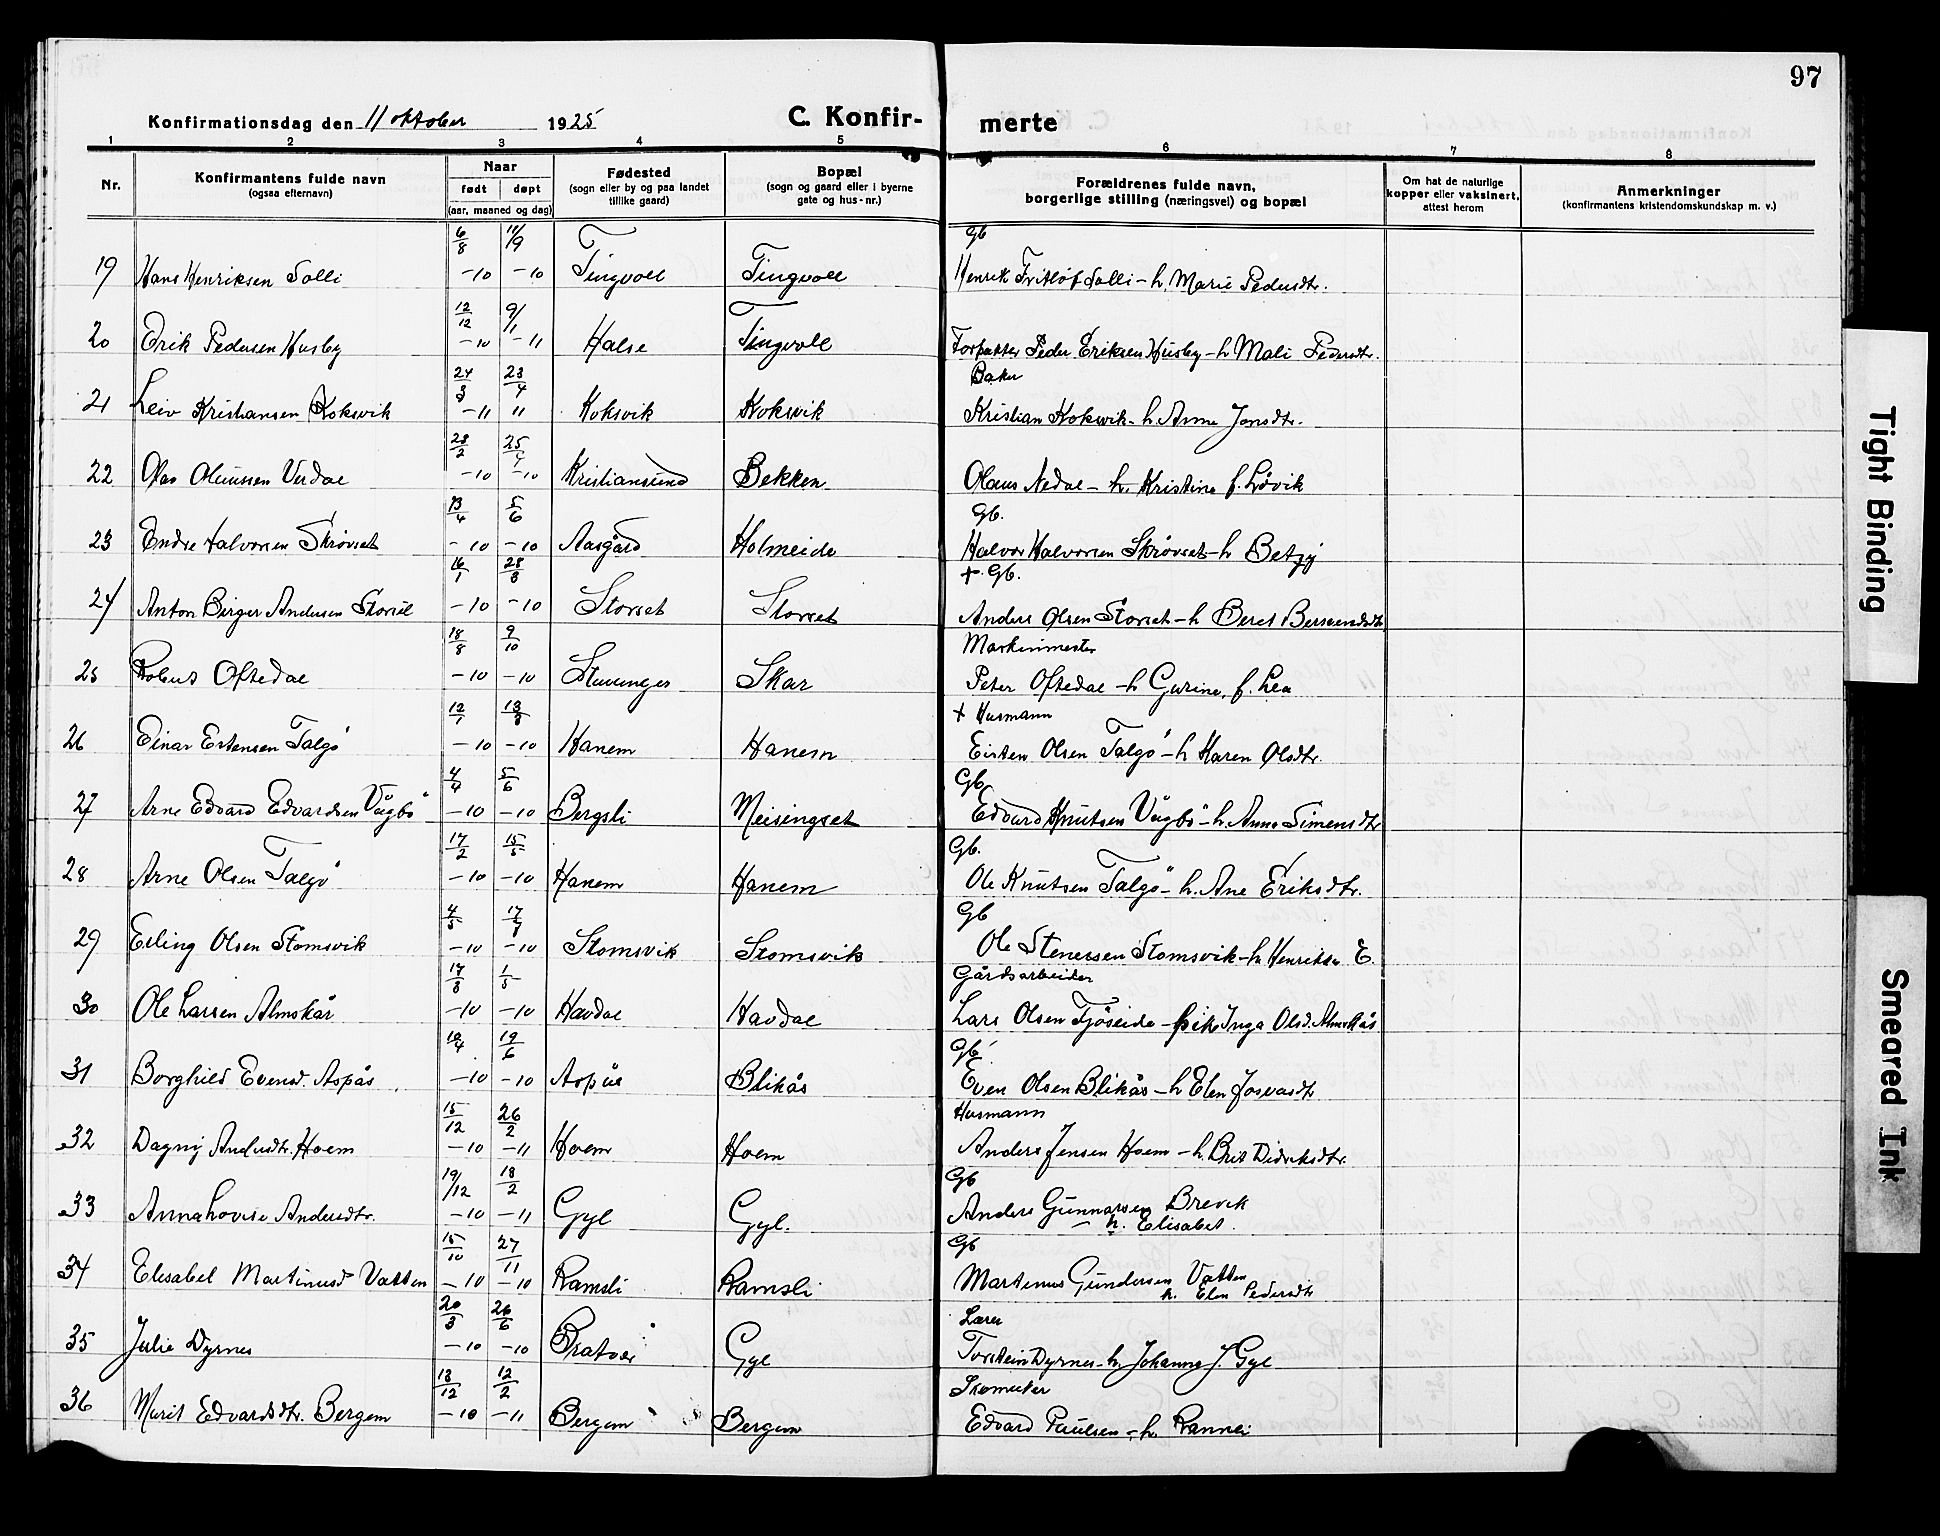 97
Konfirmationsdag den 11 oktober 1925 C. Konfir- merte
1 2 3 4 5 6 7 8
Nr. Konfirmantens fulde navn (ogsaa efternavn) Naar født døpt (aar, maaned og dag) Fødested (sogn eller by og paa landet tillike gaard) Bopæl (sogn og gaard eller i byerne gate og hus-nr.) Forældrenes fulde navn, borgerlige stilling (næringsvei) og bopæl Om hat de naturlige kopper eller vaksinert, attest herom Anmerkninger (konfirmantens kristendomskundskap m. v.)
6/8 11/9 Gb
19 Hans Henriksen Solli -10 -10 Tingvoll Tingvoll Henrik Fritlof Solli - h. Marie Pedersdtr.
12/12 9/1
20 Erik Pedersen Husby -10 -11 Halse Tingvoll Forpakter Peder Eriksen Husby - h Mali Pedersdtr.
24/3 23/4 Baker
21 Leiv Kristiansen Koksvik -11 11 Koksvik Koksvik Kristian Koksvik - h. Anne Jonsdtr.
28/2 25/
22 Olav Olaussen -10 -10 Kristiansund Bekken Olaus - h. Kristine f. Løvik
13/4 5/6 Gb.
23 Endre Halvorsen Skrøvset -10 -10 Aasgård Holmeide Halvor Halvorsen Skrøvset - h Betzy
16/1 28/3 + Gb.
24 Anton Birger Andersen Storset -10 -10 Storset Storset Anders Olsen Storset - h Beret
18/8 9/10 Maskinmester
25 Oftedal -10 -10 Stavanger Skar Peter Oftedal - h Gurine, f. Lea
12/1 13/3 + Husmann
26 Einar Estensen Talgö -10 -10 Hanem Hanem Olsen Talgö - h Karen Olsdtr.
4/4 5/6 Gb
27 Arne Edvard Edvardsen Vågbö -10 -10 Bergsli Meisingset Edvard Knutsen Vågbö - h. Anne Simensdtr
17/2 15/5 Gb.
28 Arne Olsen Talgö -10 -10 Hanem Hanem Ole Knutsen Talgö - h. Ane Eriksdtr.
4/5 17/ Gb
29 Erling Olsen Stomsvik -10 -10 Stomsvik Stomsvik Ole Stenersen Stomsvik - h E.
17/3 1/5 Gårdsarbeider
30 Ole Larsen Almskår -10 -10 Havdal Havdal Lars Olsen Tjöseide - Inga Olsd.
/4 19/6 Gb.
31 Borghild Evensd. Aspås -10 -10 Aspås Blikås Even Olsen Blikås - h Elen
15/12 26/2 Husmann
32 Dagny Andersdtr. Hoem -10 -11 Hoem Hoem Anders Jensen Hoem - h. Brit Didriksdtr.
19/12 18/2 Gb
33 Anna Lovise Andersdtr. -10 -11 Gyl Gyl. Anders Gunnarsen Brevik
- h. Elisabet.
15/10 27/11 Gb
34 Elisabet Martinusd Vatten -10 -10 Ramsli Ramsli Martinus Gundersen Vatten
h. Elen Pedersdtr
20/3 26/6 Lærer
35 Julie Dyrnes -10 -10 Bratvær Gyl Torstein Dyrnes - h. Johanne J. Gyl
13/12 12/2
36 Marit Edvardsdtr. Bergem -10 -11 Bergem Bergem Edvard Paulsen - h. Rannei
Tight Binding
Smeared Ink